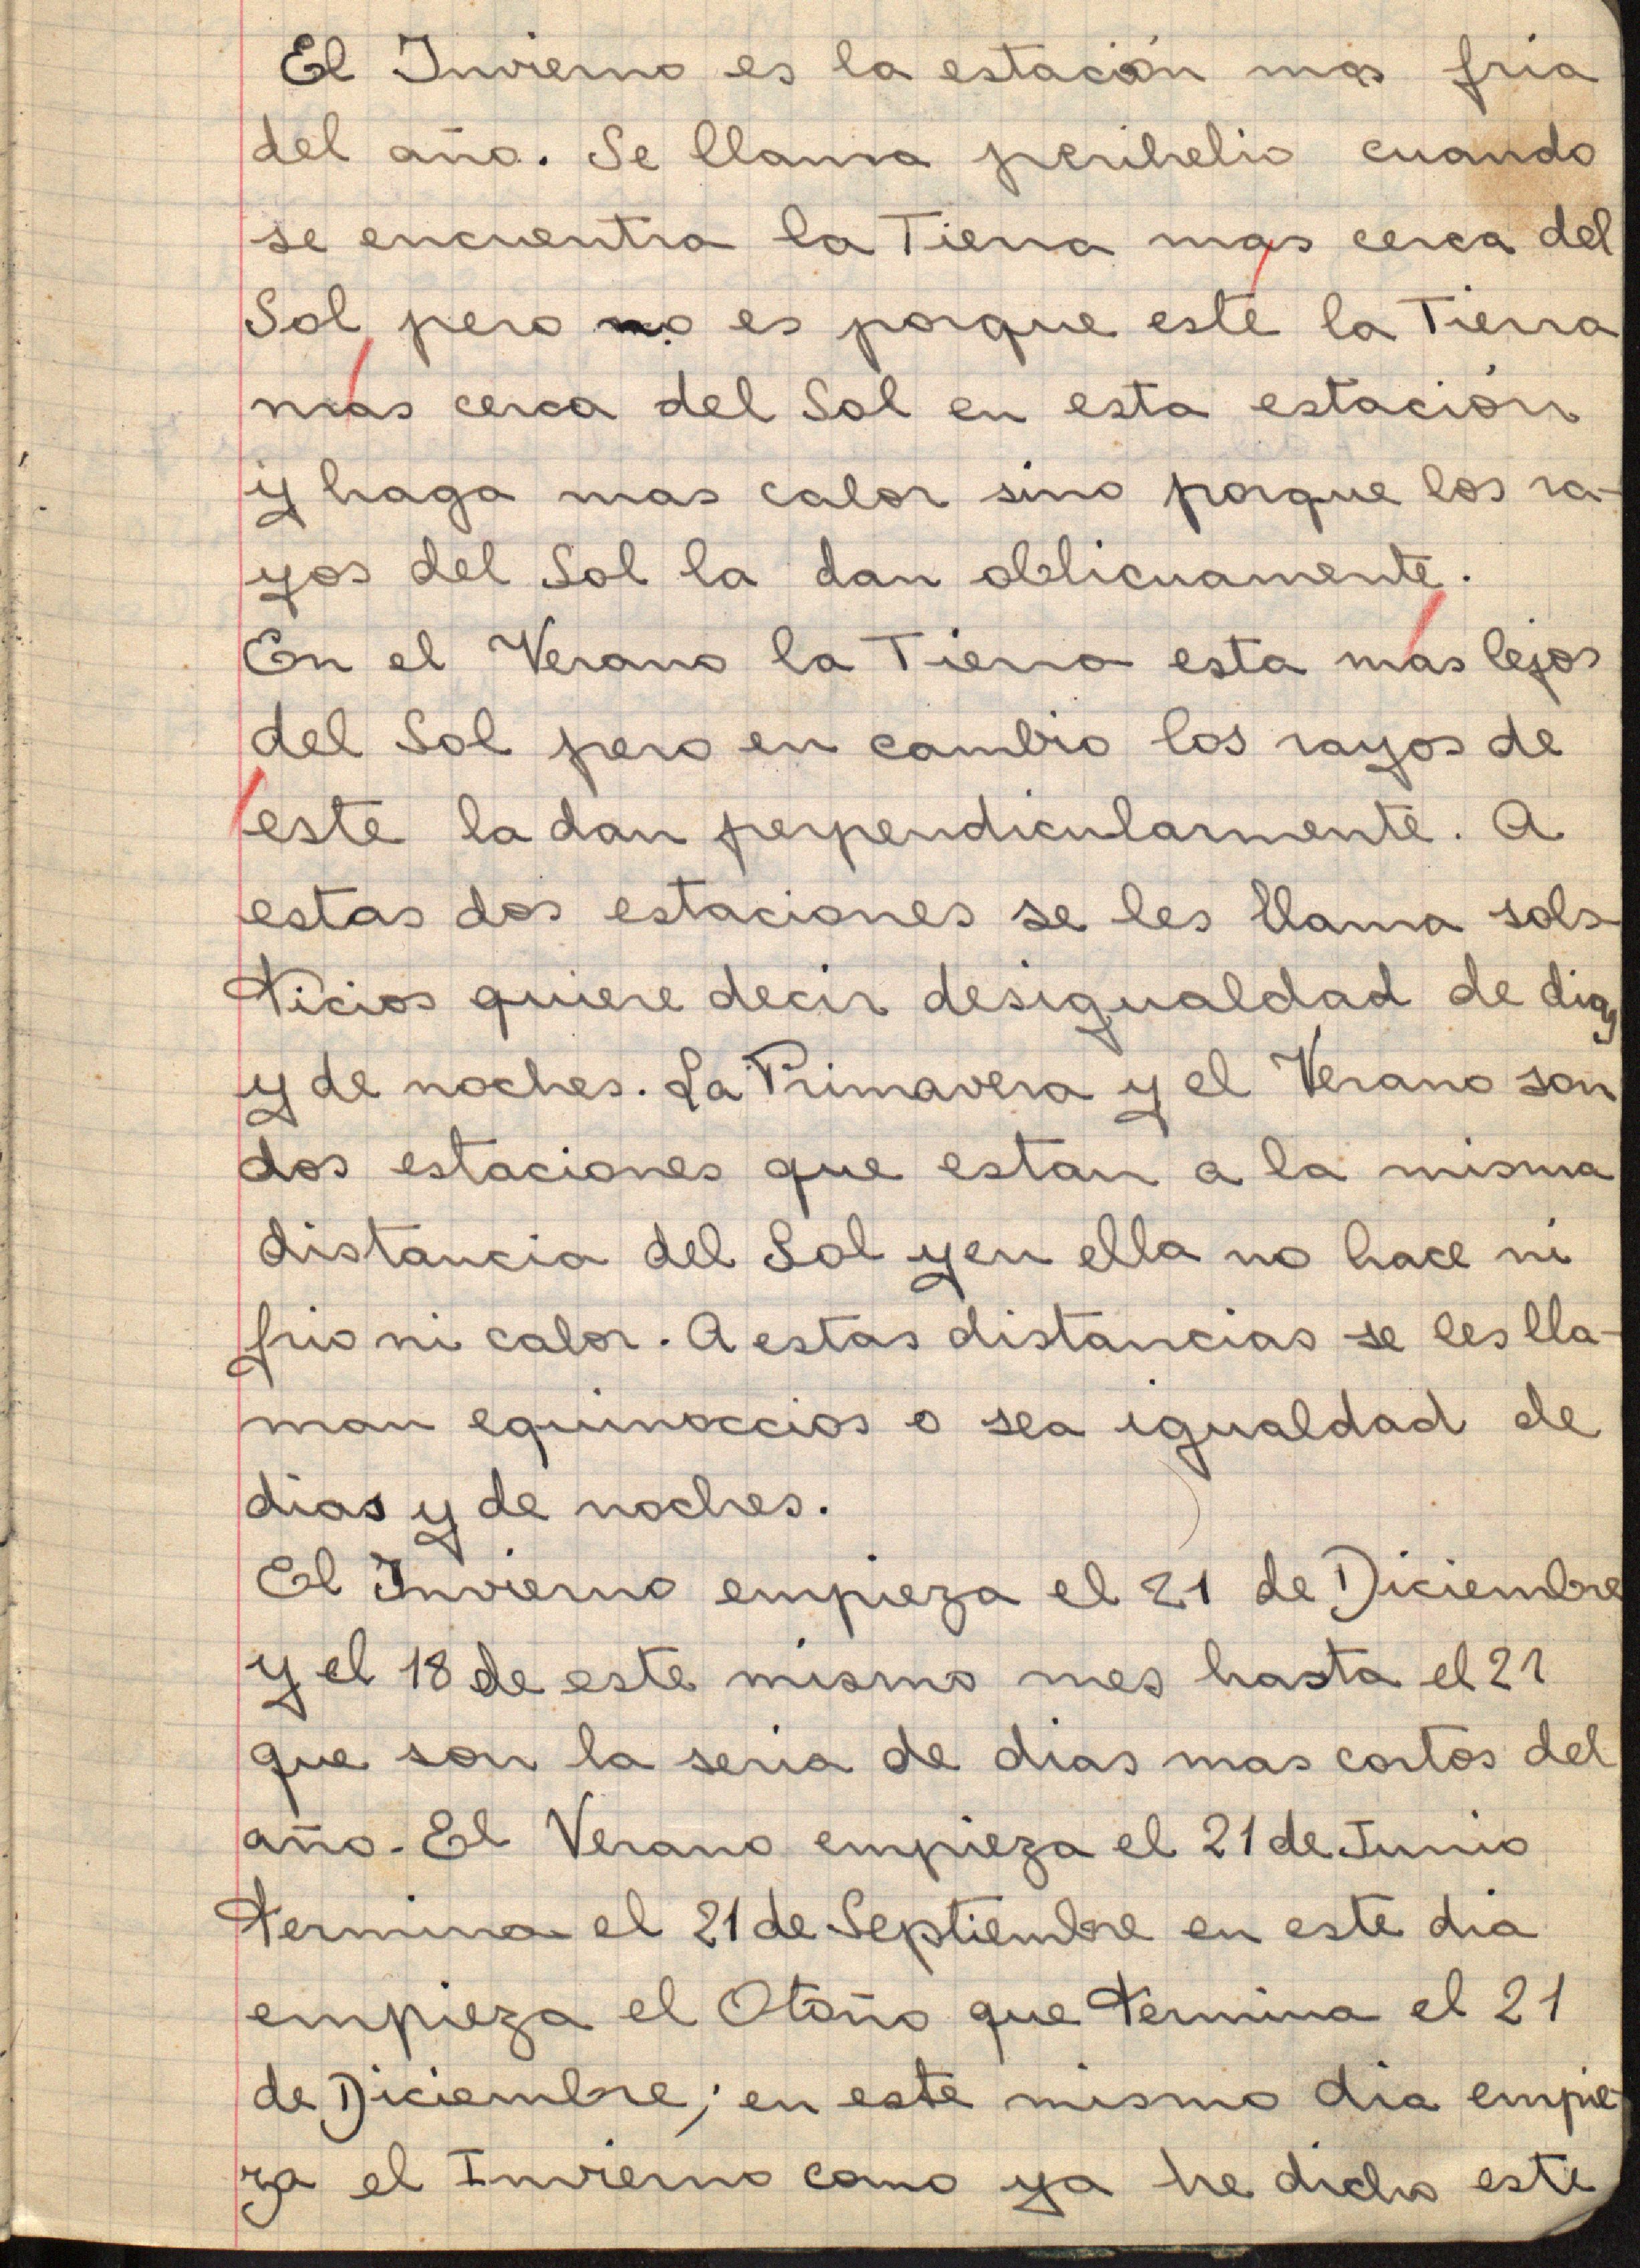 El Invierno es la estación mas fria
del año. Se llama perihelio cuando
se encuentra la Tierra mas cerca del
Sol, pero no es porque esté la Tierra
más cerca del Sol en esta estación
y haga mas calor sino porque los ra-
yos del Sol la dan oblicuamente.
En el Verano la Tierra esta más lejos
del Sol pero en cambio los rayos de
este la dan perpendicularmente. A
estas dos estaciones se les llama sols-
ticios quiere decir desigualdad de dias
y de noches. La Primavera y el Verano son
dos estaciones que estan a la misma
distancia del Sol y en ella no hace ni
frio ni calor. A estas distancias se les lla-
man equinoccios o sea igualdad de
dias y de noches.
El Invierno empieza el 21 de Diciembre
y el 18 de este mismo mes hasta el 21
que son la seria de dias mas cortos del
año. El Verano empieza el 21 de Junio
termina el 21 de Septiembre en este dia
empieza el Otoño que termina el 21
de Diciembre; en este mismo dia empie-
za el Invierno como ya he dicho este